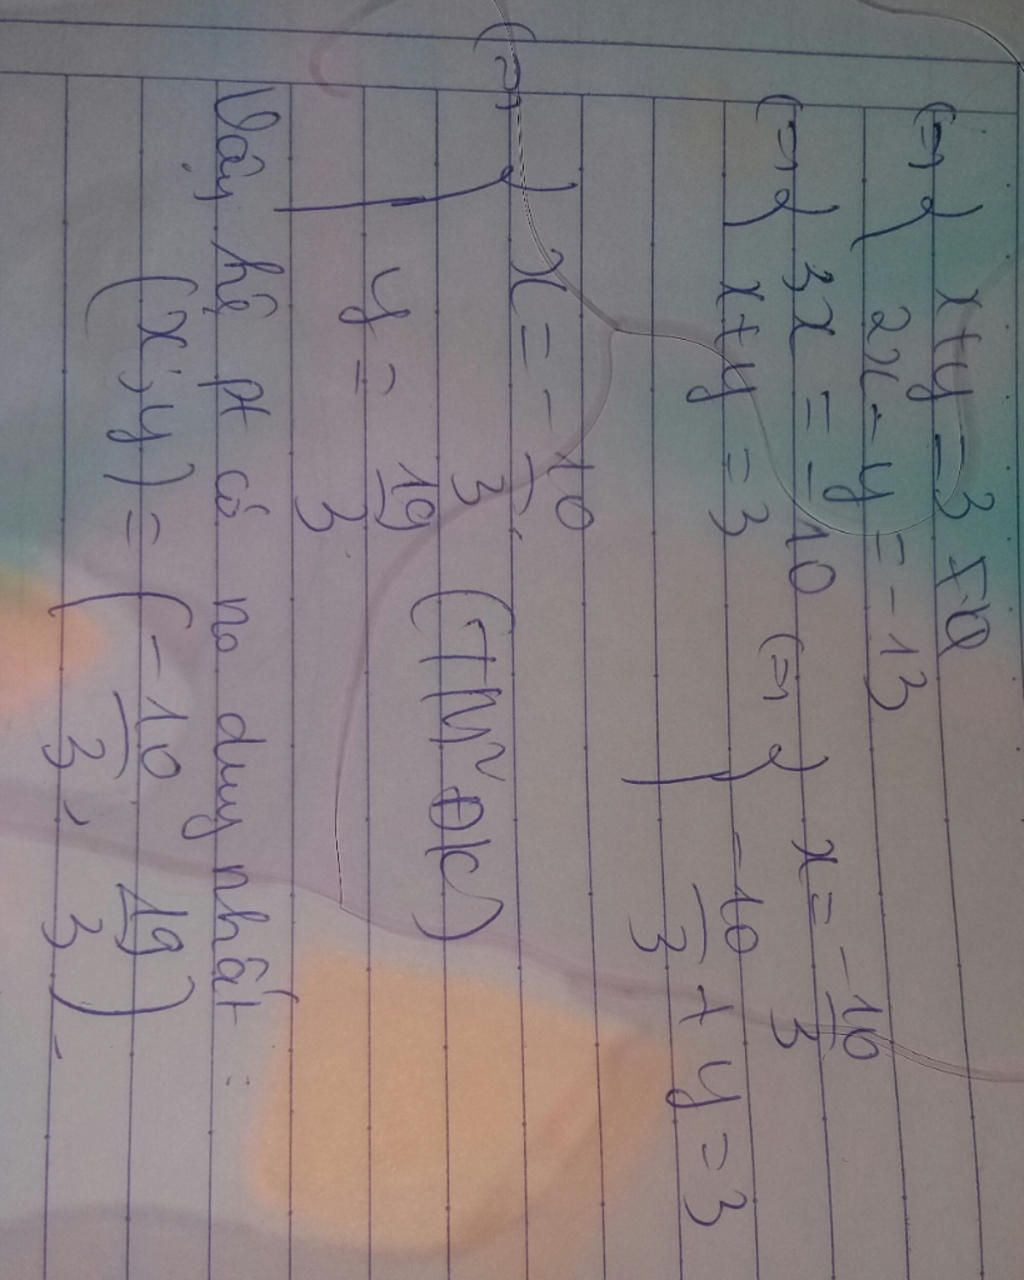 (=) { x+y = 3
2x-y = -13
(=) { 3x = -10 (=) { x = -10/3
x+y = 3 -10/3 + y = 3
(=) { x = -10/3
y = 19/3 (TM ĐK)
Vậy hệ pt có no duy nhất :
(x;y) = (-10/3, 19/3).